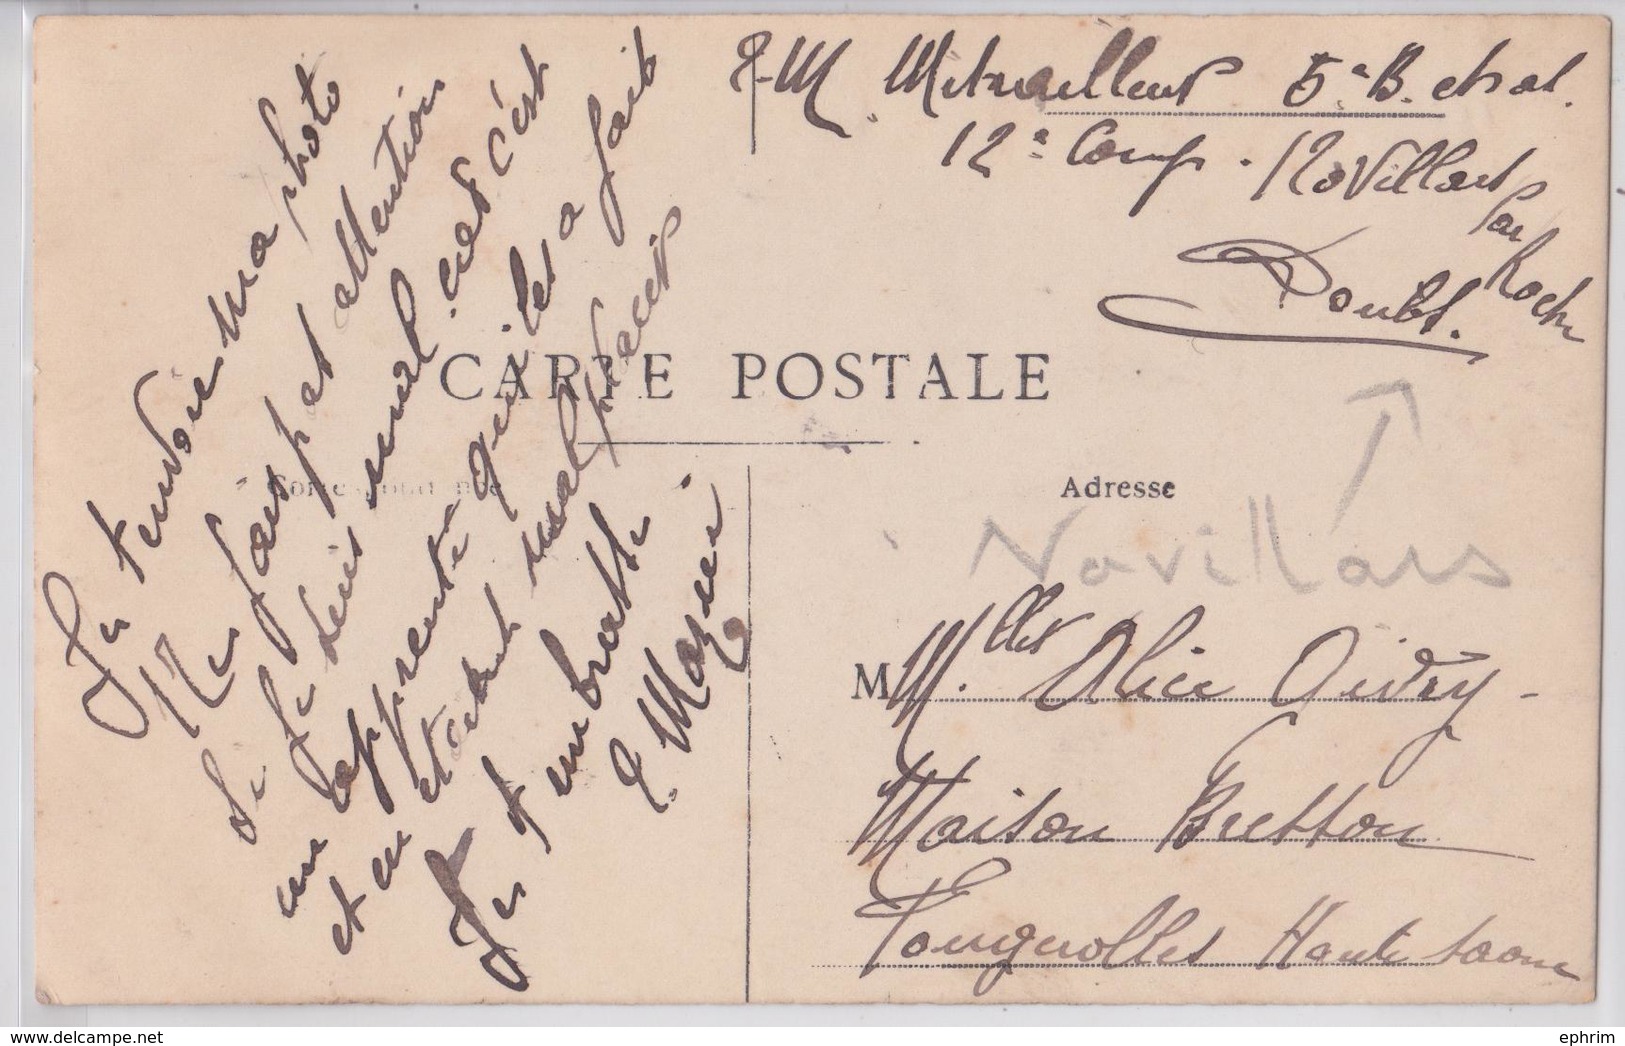 E. M. Mitrailleur 5e B. et ral.
12e Comp. Novillars
par Roche
Doubs.
CARTE POSTALE
Correspondance
Adresse
Novillars
M Mlles Alice Oivry -
Maison Bretton
Fougerolles Haute Saone
Je tenvoie ma photo
Ne fais pas attention
si je suis mal, mes c'est
un apprenti qui les a fait
et en etant mal precis
Je t'embrasse
E. Mazui
ephrim